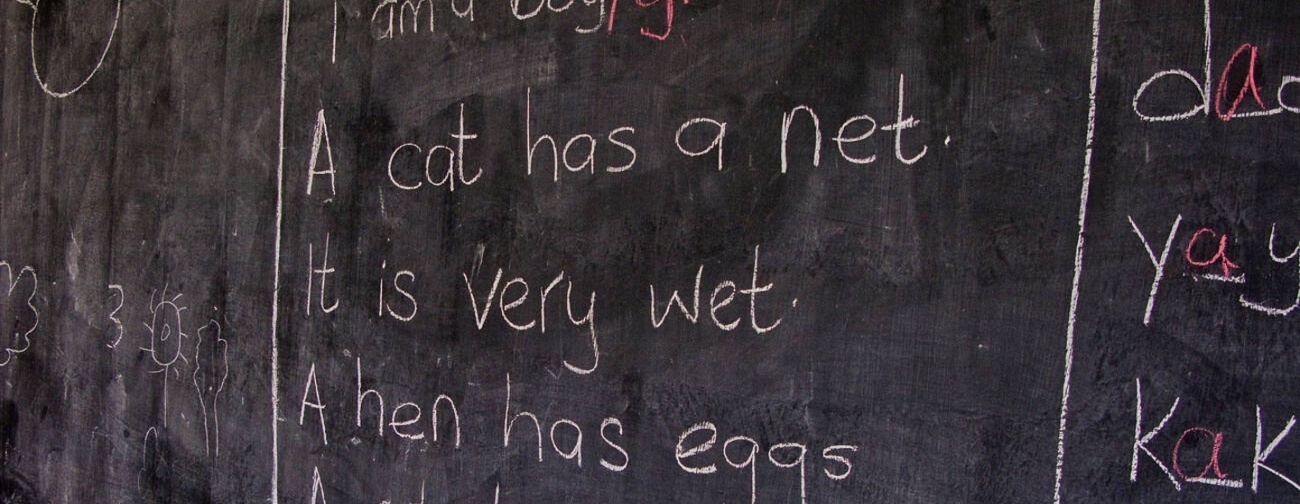 I am a boy/g
A cat has a net.
It is very wet.
A hen has eggs
da
yay
KaK